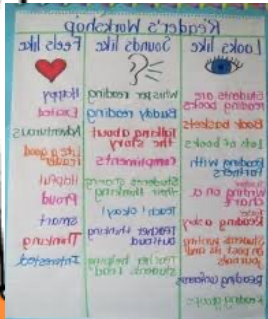 Reader's Workshop
Looks like
Students are
reading books
Book baskets
Lots of books
Reading with
Partners
writing on a
chart
Reading a story
Students writing
on post its and
journals
Reading groups
Sounds like
Whisper reading
Buddy reading
talking about
the story
Compliments
Students sharing
their thinking
Teacher thinking
outloud
Teacher helping
student. "read"
Feels like
Happy
Excited
Adventurous
Like a good
reader
Helpful
Proud
smart
Thinking
Interested